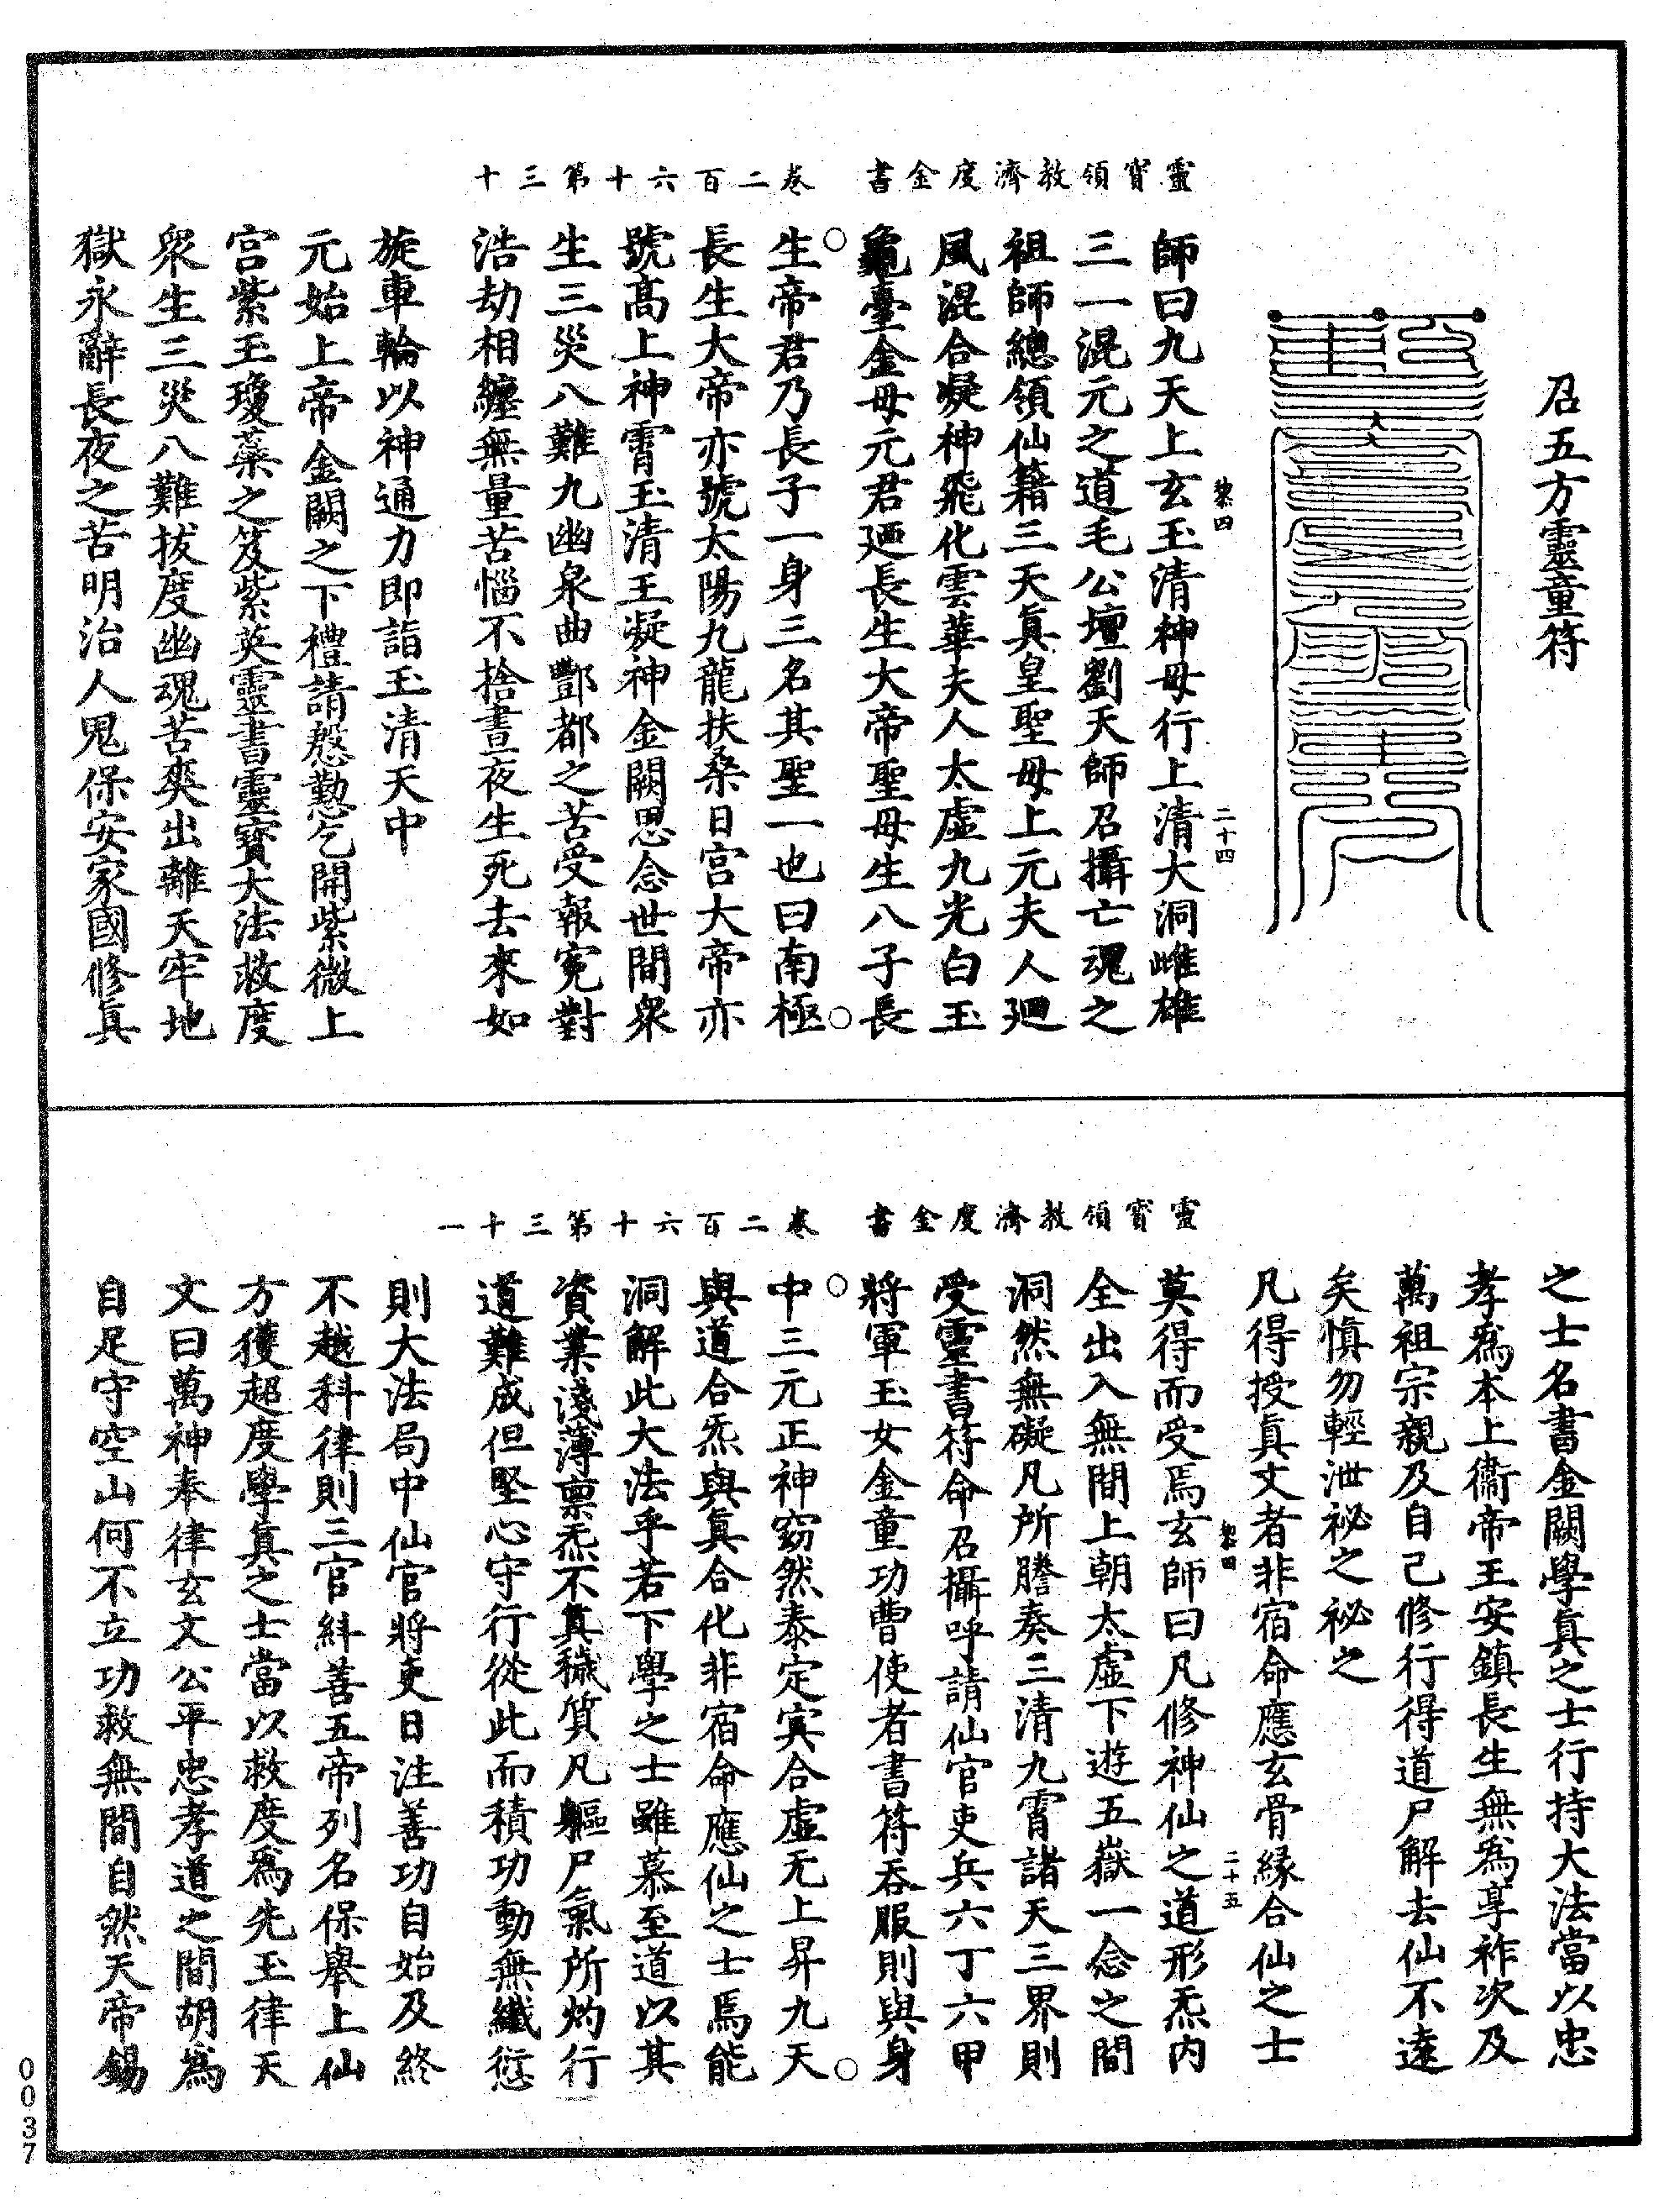 召五方靈童符
黎四 二十四
靈寶領教濟度金書 卷二百六十第三十
師曰九天上玄玉清神母行上清大洞雌雄
三一混元之道毛公壇劉天師召攝亡魂之
祖師總領仙籍三天真皇聖母上元夫人迴
風混合凝神飛化雲華夫人太虛九光白玉
龜臺金母元君迺長生大帝聖母生八子長
生帝君乃長子一身三名其聖一也曰南極
長生大帝亦號太陽九龍扶桑日宮大帝亦
號高上神霄玉清王凝神金闕思念世間衆
生三災八難九幽泉曲酆都之苦受報寃對
浩劫相纏無量苦惱不捨晝夜生死去來如
旋車輪以神通力即詣玉清天中
元始上帝金闕之下禮請慇懃乞開紫微上
宮紫玉瓊蘂之笈紫英靈書靈寶大法救度
衆生三災八難拔度幽魂苦爽出離天牢地
獄永辭長夜之苦明治人鬼保安家國修真
之士名書金闕學真之士行持大法當以忠
孝爲本上衞帝王安鎮長生無爲享祚次及
萬祖宗親及自己修行得道尸解去仙不遠
矣慎勿輕泄祕之祕之
凡得授真文者非宿命應玄骨緣合仙之士
黎四 二十五
靈寶領教濟度金書 卷二百六十第三十一
莫得而受焉玄師曰凡修神仙之道形炁内
全出入無間上朝太虛下遊五嶽一念之間
洞然無礙凡所謄奏三清九霄諸天三界則
受靈書符命召攝呼請仙官吏兵六丁六甲
將軍玉女金童功曹使者書符吞服則與身
中三元正神窈然泰定冥合虛无上昇九天
與道合炁與真合化非宿命應仙之士焉能
洞解此大法乎若下學之士雖慕至道以其
資業淺薄禀炁不真穢質凡軀尸氣所灼行
道難成但堅心守行從此而積功動無纖愆
則大法局中仙官將吏日注善功自始及終
不越科律則三官糾善五帝列名保舉上仙
方獲超度學真之士當以救度爲先玉律天
文曰萬神奉律玄文公平忠孝道之間胡爲
自足守空山何不立功救無間自然天帝錫
0037